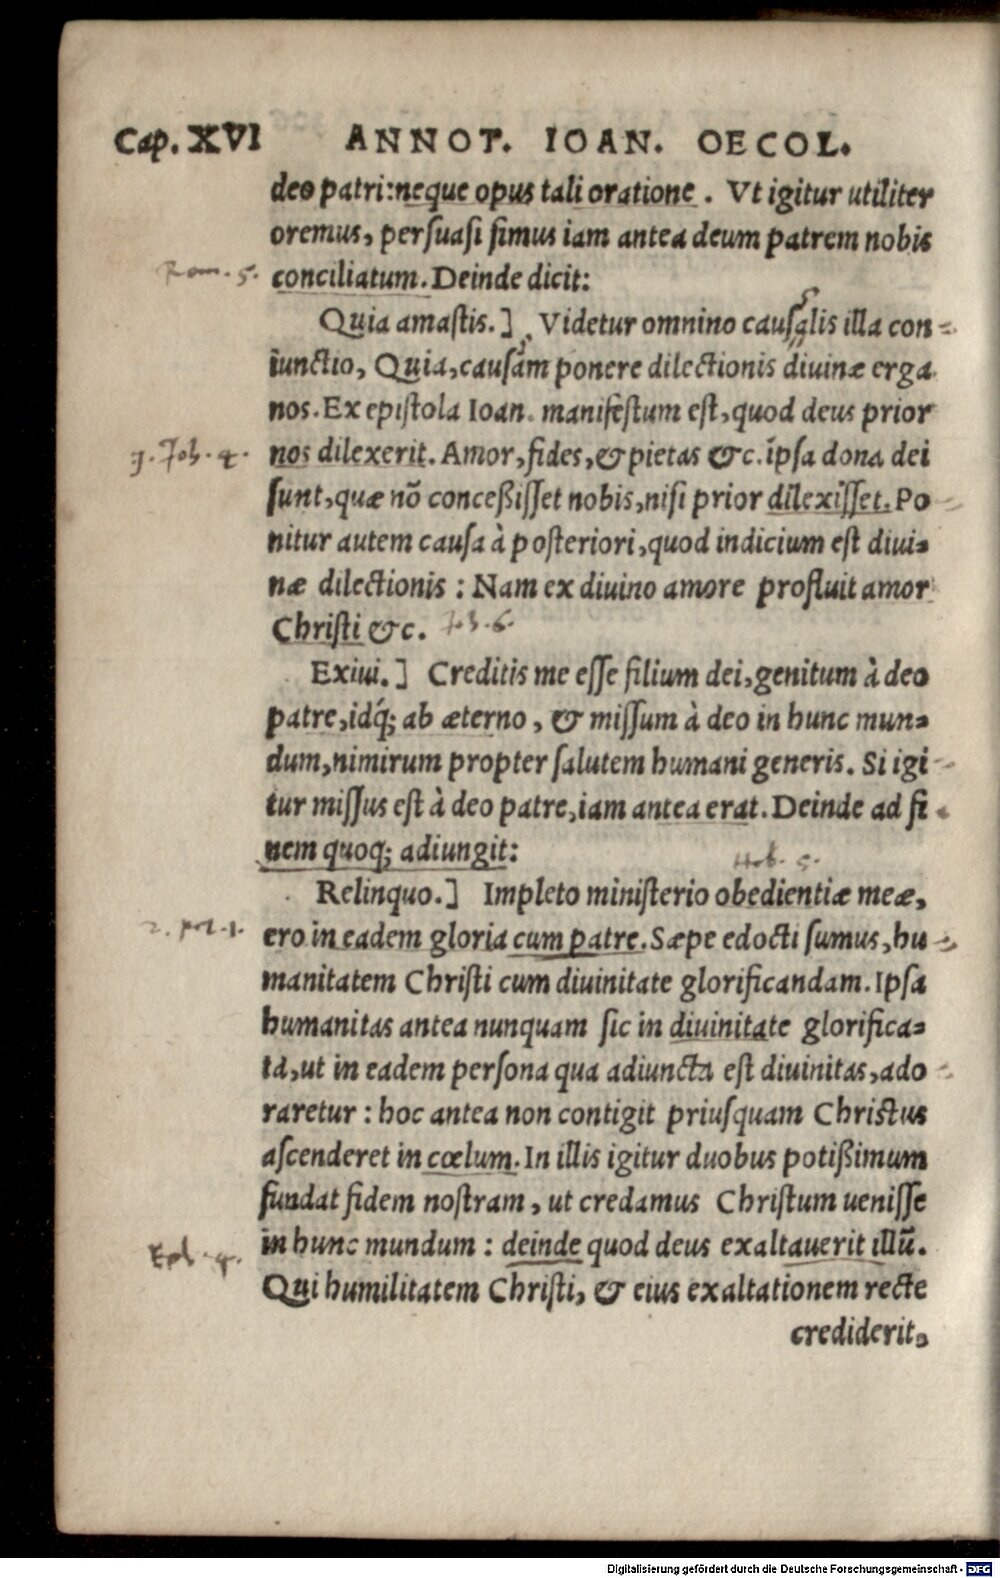 Cap. XVI ANNOT. IOAN. OECOL.
deo patri: neque opus tali oratione. Vt igitur utiliter
oremus, persuasi simus iam antea deum patrem nobis
Rom. 5. conciliatum. Deinde dicit:
Quia amastis.] Videtur omnino causalis illa con=
iunctio, Quia, causam ponere dilectionis diuinæ erga
nos. Ex epistola Ioan. manifestum est, quod deus prior
1. Joh. 4. nos dilexerit. Amor, fides, & pietas &c. ipsa dona dei
sunt, quæ nõ conceßisset nobis, nisi prior dilexisset. Po
nitur autem causa à posteriori, quod indicium est diui=
næ dilectionis: Nam ex diuino amore profluit amor
Christi &c. Joh. 6.
Exiui.] Creditis me esse filium dei, genitum à deo
patre, idq́; ab æterno, & missum à deo in hunc mun=
dum, nimirum propter salutem humani generis. Si igi
tur missus est à deo patre, iam antea erat. Deinde ad fi
nem quoq; adiungit:
Heb. 5.
Relinquo.] Impleto ministerio obedientiæ meæ,
ero in eadem gloria cum patre. Sæpe edocti sumus, hu
manitatem Christi cum diuinitate glorificandam. Ipsa
humanitas antea nunquam sic in diuinitate glorifica=
ta, ut in eadem persona qua adiuncta est diuinitas, ado
raretur: hoc antea non contigit priusquam Christus
ascenderet in cœlum. In illis igitur duobus potißimum
fundat fidem nostram, ut credamus Christum uenisse
Eph. 4. in hunc mundum: deinde quod deus exaltauerit illũ.
Qui humilitatem Christi, & eius exaltationem recte
crediderit,
Digitalisierung gefördert durch die Deutsche Forschungsgemeinschaft - DFG